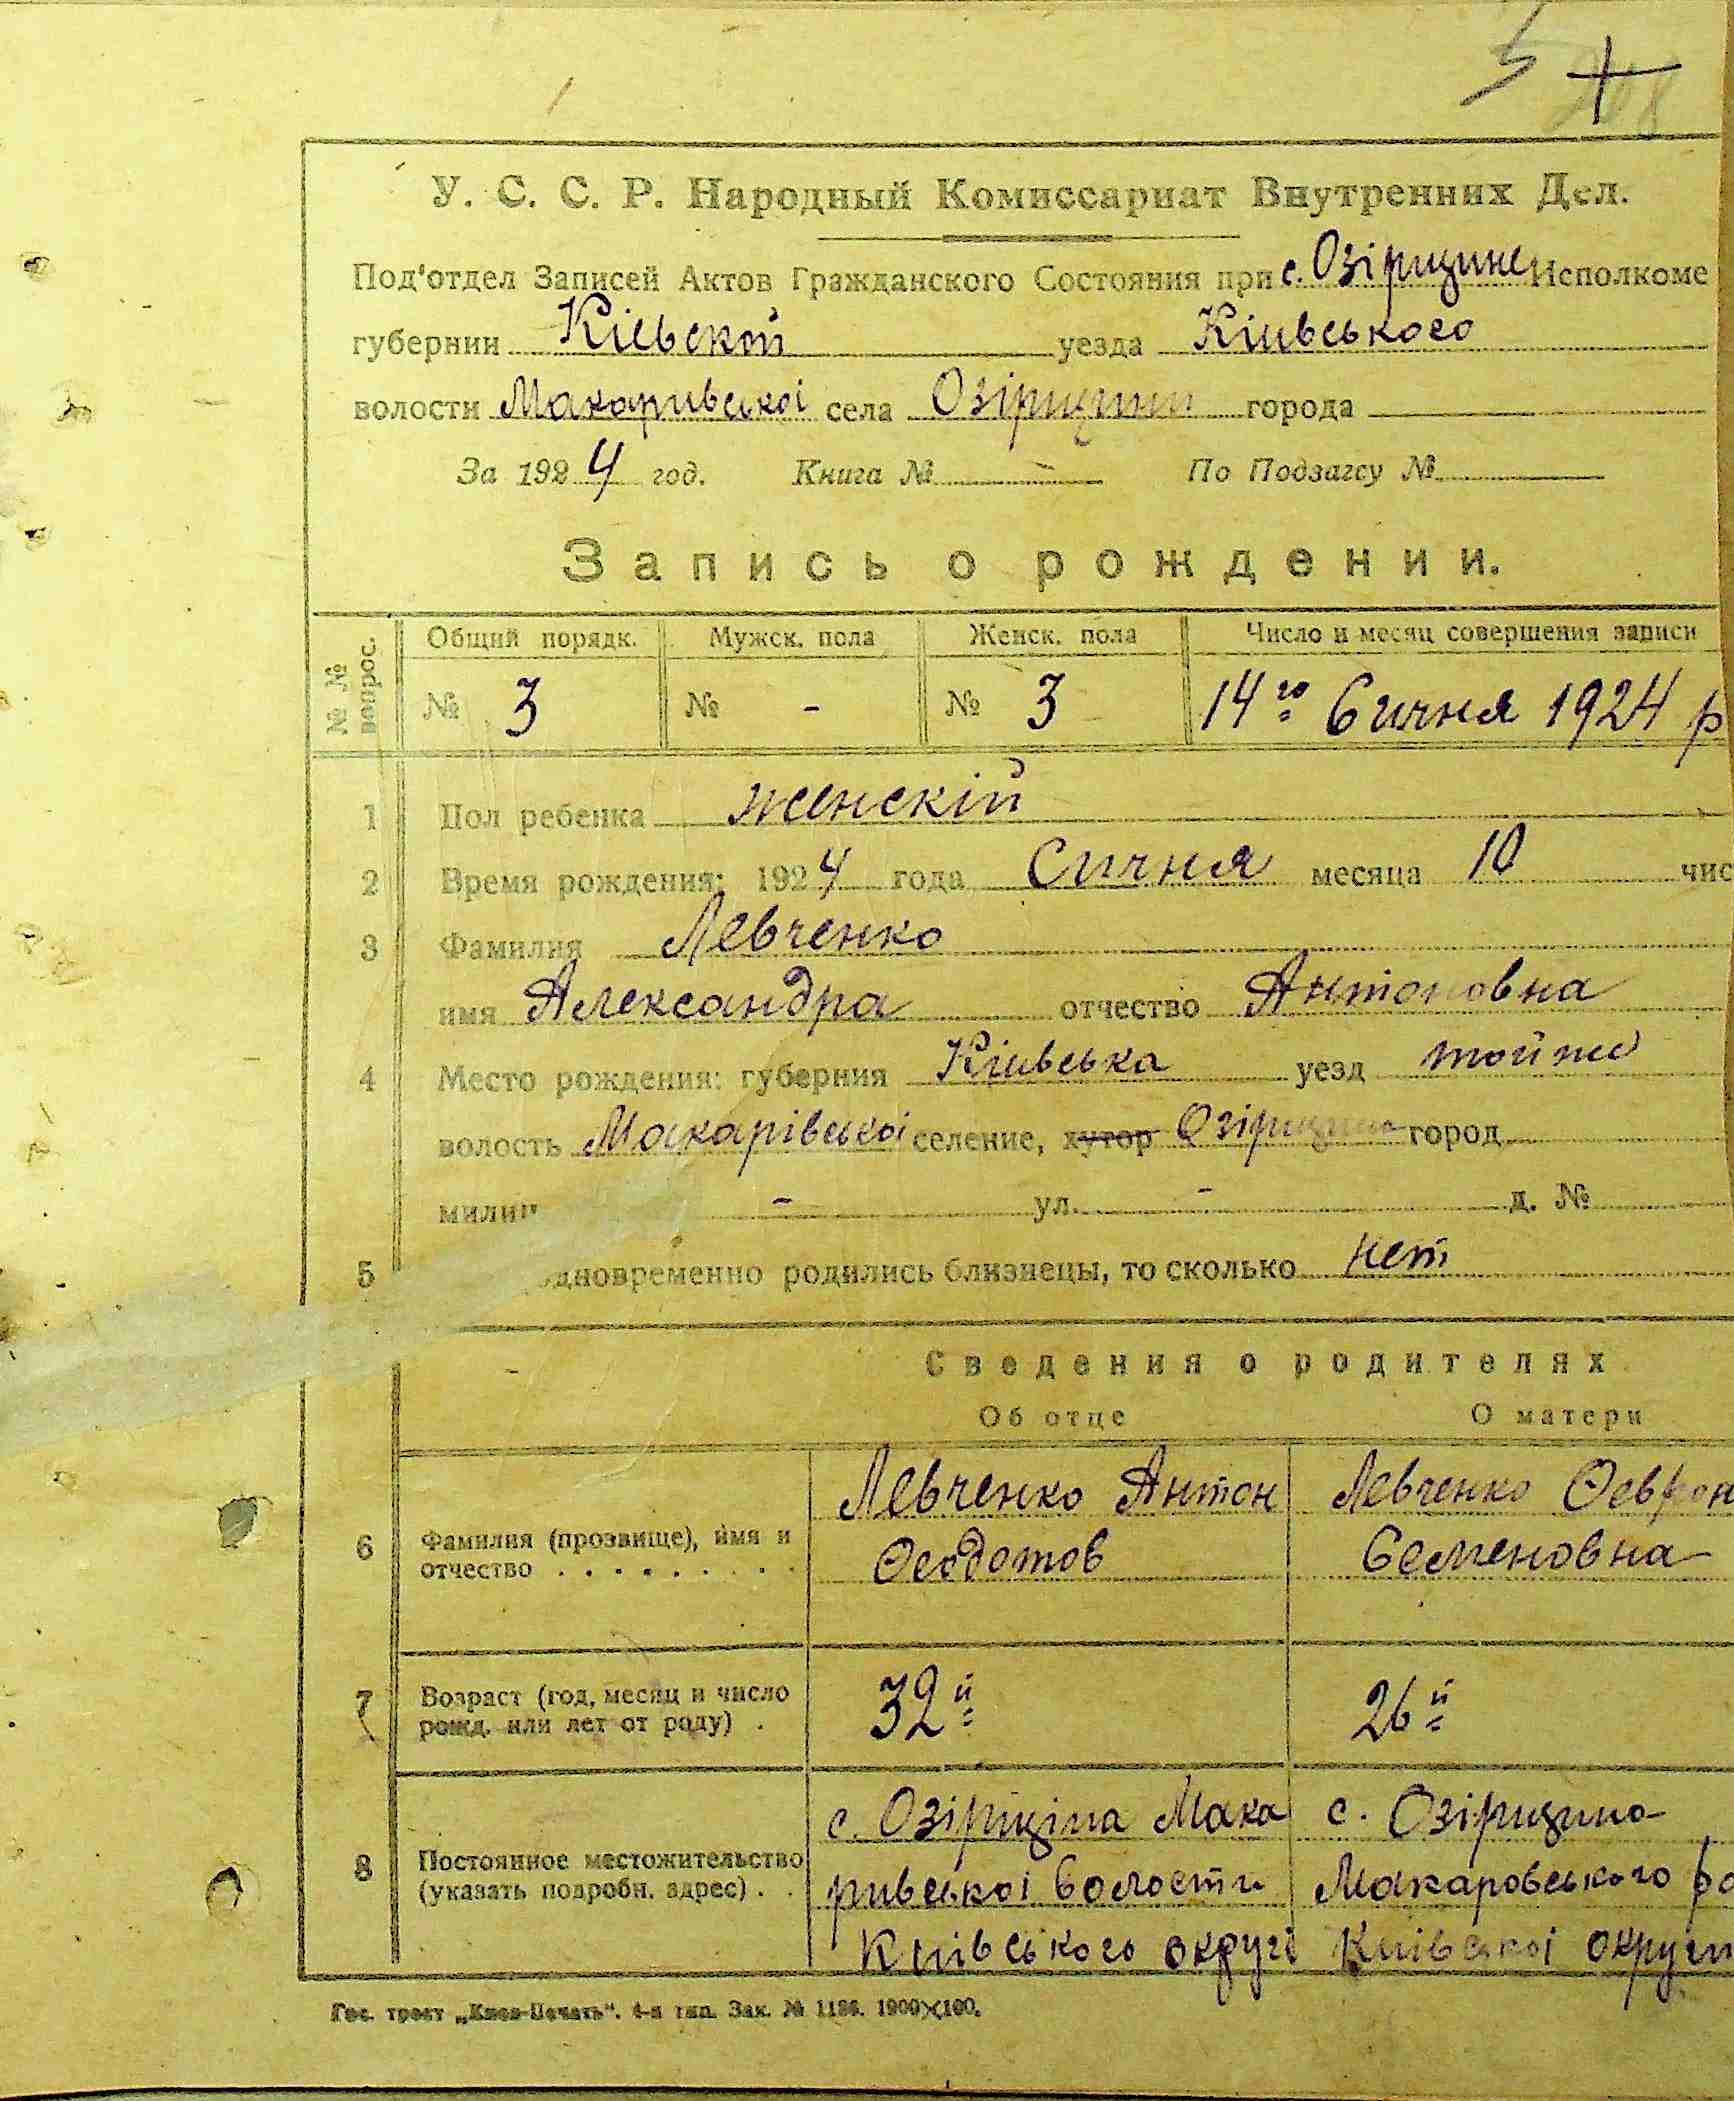 5 +
У. С. С. Р. Народный Комиссариат Внутренних Дел.
Под'отдел Записей Актов Гражданского Состояния при с. Озірщине Исполкоме
губернии Кіевской уезда Київського
волости Макаривськоі села Озірщини города
За 1924 год. Книга № По Подзагсу №
Запись о рождении.
№ № вопрос. Общий порядк. Мужск. пола Женск. пола Число и месяц совершения записи
№ 3 № - № 3 14го Сичня 1924 р
1 Пол ребенка женскій
2 Время рождения: 1924 года Сичня месяца 10 чис
3 Фамилия Левченко
имя Александра отчество Антоновна
4 Место рождения: губерния Київська уезд той же
волость Макарівськоі селение, хутор Озірщина город
мили - ул. - д. №
5 одновременно родились близнецы, то сколько нет
Сведения о родителях
Об отце О матери
6 Фамилия (прозвище), имя и отчество . . . . . . . . . Левченко Антон Ѳеодотов Левченко Ѳеврон Семеновна
7 Возраст (год, месяц и число рожд. или лет от роду) . 32й 26й
8 Постоянное местожительство (указать подробн. адрес) . .
с. Озіріщіна Мака с. Озірщина
ривськоі волости Макаровського ра
Київського округі Київскоі округи
Гос. трест „Киев-Печать“. 4-я тип. Зак. № 1186. 1900×100.